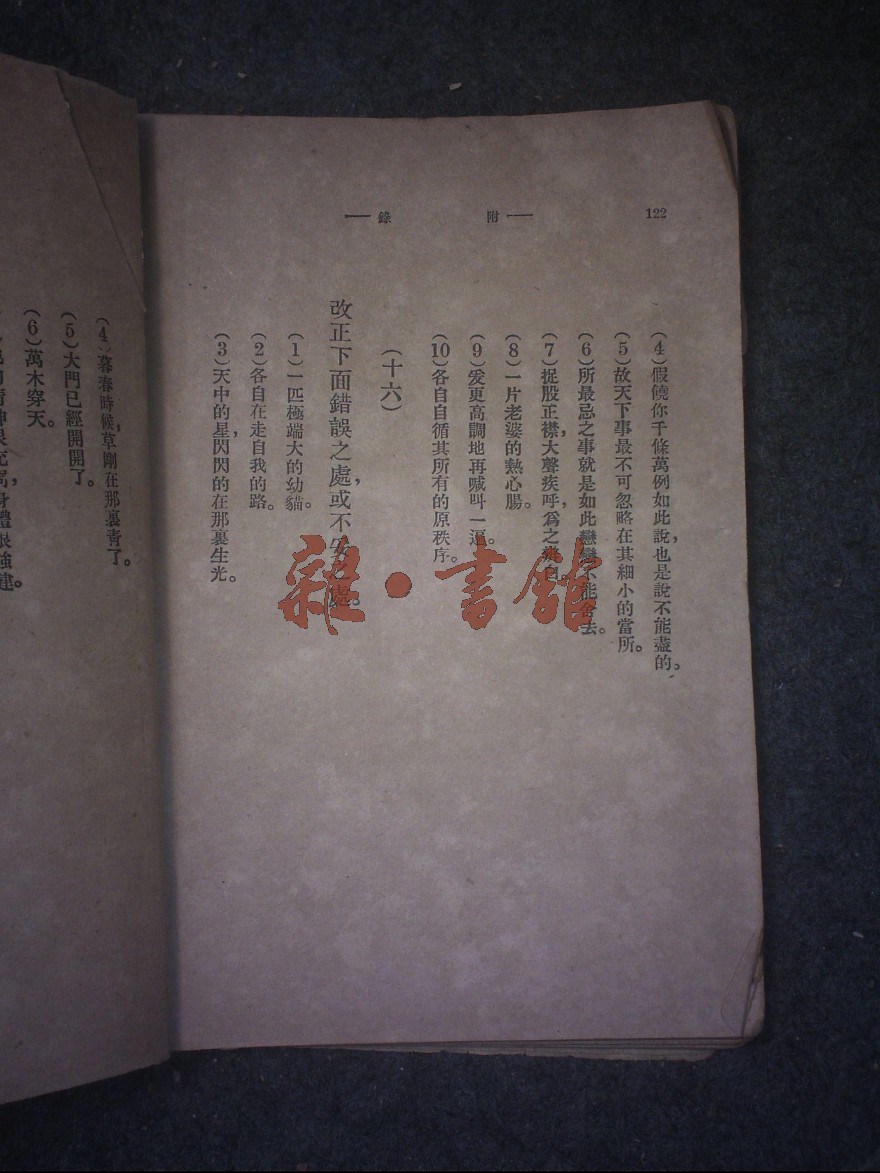 122
附錄
(4)假饒你千條萬例如此說，也是說不能盡的。
(5)故天下事最不可忽略在其細小的當所。
(6)所最忌之事就是如此戀戀不能舍去。
(7)捉股正襟，大聲疾呼，爲之
(8)一片老婆的熱心腸。
(9)愛更高調地再喊叫一逼。
(10)各自自循其所有的原秩序。
(十六)
改正下面錯誤之處，或不安之處。
(1)一匹極端大的幼貓。
(2)各自在走自我的路。
(3)天中的星，閃閃的在那裏生光。
(4)暮春時候，草剛在那裏靑了。
(5)大門已經開開了。
(6)萬木穿天。
精神很充寓，身體很強建。
雜·書館